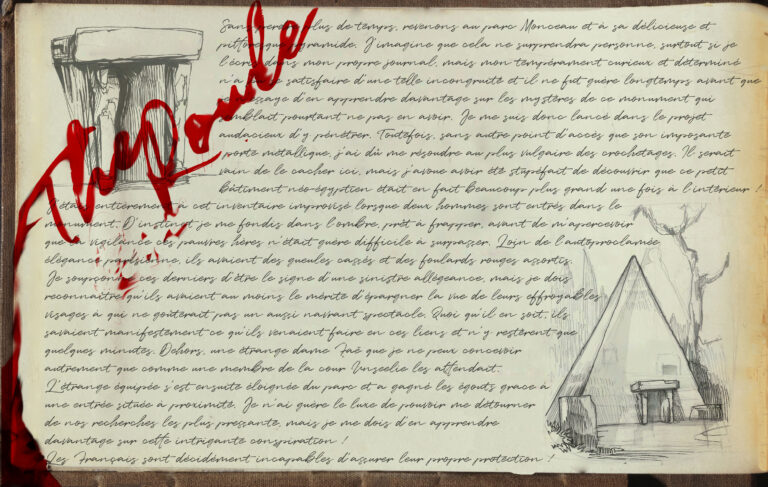 The Roule
Sans perdre plus de temps, revenons au parc Monceau et à sa délicieuse et
pittoresque pyramide. J'imagine que cela ne surprendra personne, surtout si je
l'écris dans mon propre journal, mais mon tempérament curieux et déterminé
n'a satisfaire d'une telle incongruité et il ne fut guère longtemps avant que
d'en apprendre davantage sur les mystères de ce monument qui
semblait pourtant ne pas en avoir. Je me suis donc lancé dans le projet
audacieux d'y pénétrer. Toutefois, sans autre point d'accès que son imposante
porte métallique, j'ai dû me résoudre au plus vulgaire des crochetages. Il serait
vain de le cacher ici, mais j'avoue avoir été stupéfait de découvrir que ce petit
bâtiment néo-égyptien était en fait beaucoup plus grand une fois à l'intérieur !
J'étais entièrement à cet inventaire improvisé lorsque deux hommes sont entrés dans le
monument. D'instinct je me fondis dans l'ombre, prêt à frapper, avant de m'apercevoir
que la vigilance des pauvres hères n'était guère difficile à surpasser. Loin de l'autoproclamée
élégance parisienne, ils avaient des gueules cassés et des foulards rouges assortis.
Je soupçonne ces derniers d'être le signe d'une sinistre allégeance, mais je dois
reconnaître qu'ils avaient au moins le mérite d'épargner la vue de leurs effroyables
visages à qui ne goûterait pas un aussi navrant spectacle. Quoi qu'il en soit, ils
savaient manifestement ce qu'ils venaient faire en ces liens et n'y restèrent que
quelques minutes. Dehors, une étrange dame Faë que je ne peux concevoir
autrement que comme une membre de la cour Unseelie les attendait.
L'étrange équipée s'est ensuite éloignée du parc et a gagné les égouts grace à
une entrée située à proximité. Je n'ai guère le luxe de pouvoir me détourner
de nos recherches les plus pressante, mais je me dois d'en apprendre
davantage sur cette intrigante conspiration !
Les Français sont décidément incapables d'assurer leur propre protection !